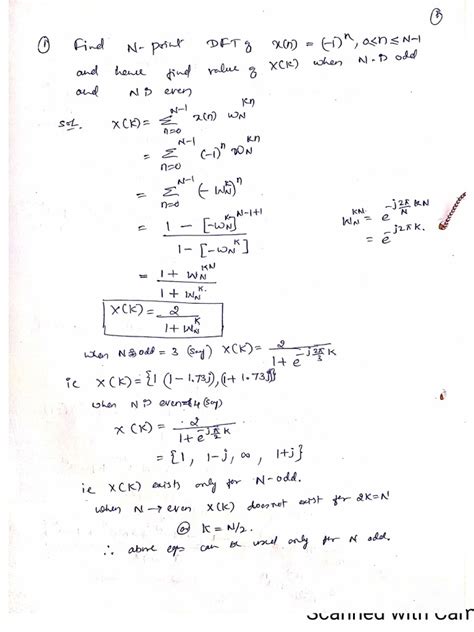 ②
① Find N-point DFT of x(n) = (-1)^n, 0≤n≤N-1
and hence find value of X(K) when N is odd
and N is even
Sol. X(K) = Σ_{n=0}^{N-1} x(n) W_N^{Kn}
= Σ_{n=0}^{N-1} (-1)^n W_N^{Kn}
= Σ_{n=0}^{N-1} (-W_N^K)^n
= (1 - [-W_N^K]^{N-1+1}) / (1 - [-W_N^K])
W_N^{KN} = e^{-j 2π/N KN}
= e^{-j2πK}.
= (1 + W_N^{KN}) / (1 + W_N^K.)
X(K) = 2 / (1 + W_N^K)
when N is odd = 3 (say) X(K) = 2 / (1 + e^{-j 2π/3 K})
ie X(K) = {1 (1-1.73j), (1+1.73j)}
when N is even = 4 (say)
X(K) = 2 / (1 + e^{-j π/2 K})
= {1, 1-j, ∞, 1+j}
ie X(K) exists only for N-odd.
when N → even X(K) does not exist for 2K=N
(or) K = N/2.
∴ above eqn can be used only for N odd.
Scanned with Cam